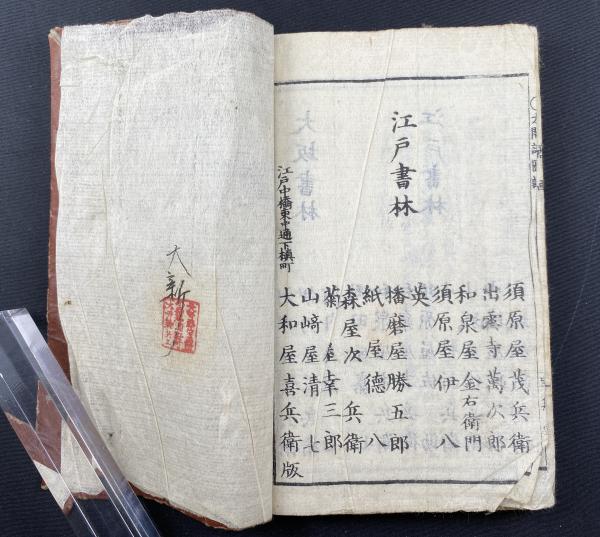 江戸書林
須原屋茂兵衛
出雲寺萬次郎
和泉屋金右衛門
須原屋伊八
英
播磨屋勝五郎
紙屋德八
森屋次兵衛
菊屋幸三郎
山﨑屋清七
江戸中橋東中通下槇町
大和屋喜兵衛版
大新